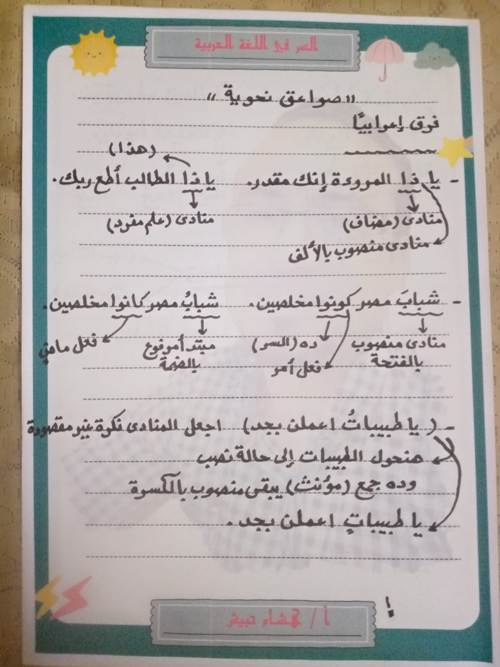 السر في اللغة العربية
"صواعق نحوية"
فرق إعرابيًا
(هذا)
- يا ذا المودة إنك مقدر. يا ذا الطالب أطع ربك.
منادى (مضاف) منادى (علم مفرد)
منادى منصوب بالألف
- شبابَ مصر كونوا مخلصين. شبابُ مصر كانوا مخلصين.
منادى منصوب ده (السر) مبتدأ مرفوع فعل ماضي
بالفتحة فعل أمر بالضمة
- (يا طبيباتُ اعملن بجد) اجعل المنادى نكرة غير مقصودة
هنحول الطبيبات إلى حالة نصب
وده جمع (مؤنث) يبقى منصوب بالكسرة
يا طبيباتٍ اعملن بجد.
!
أ / هشام حبيش